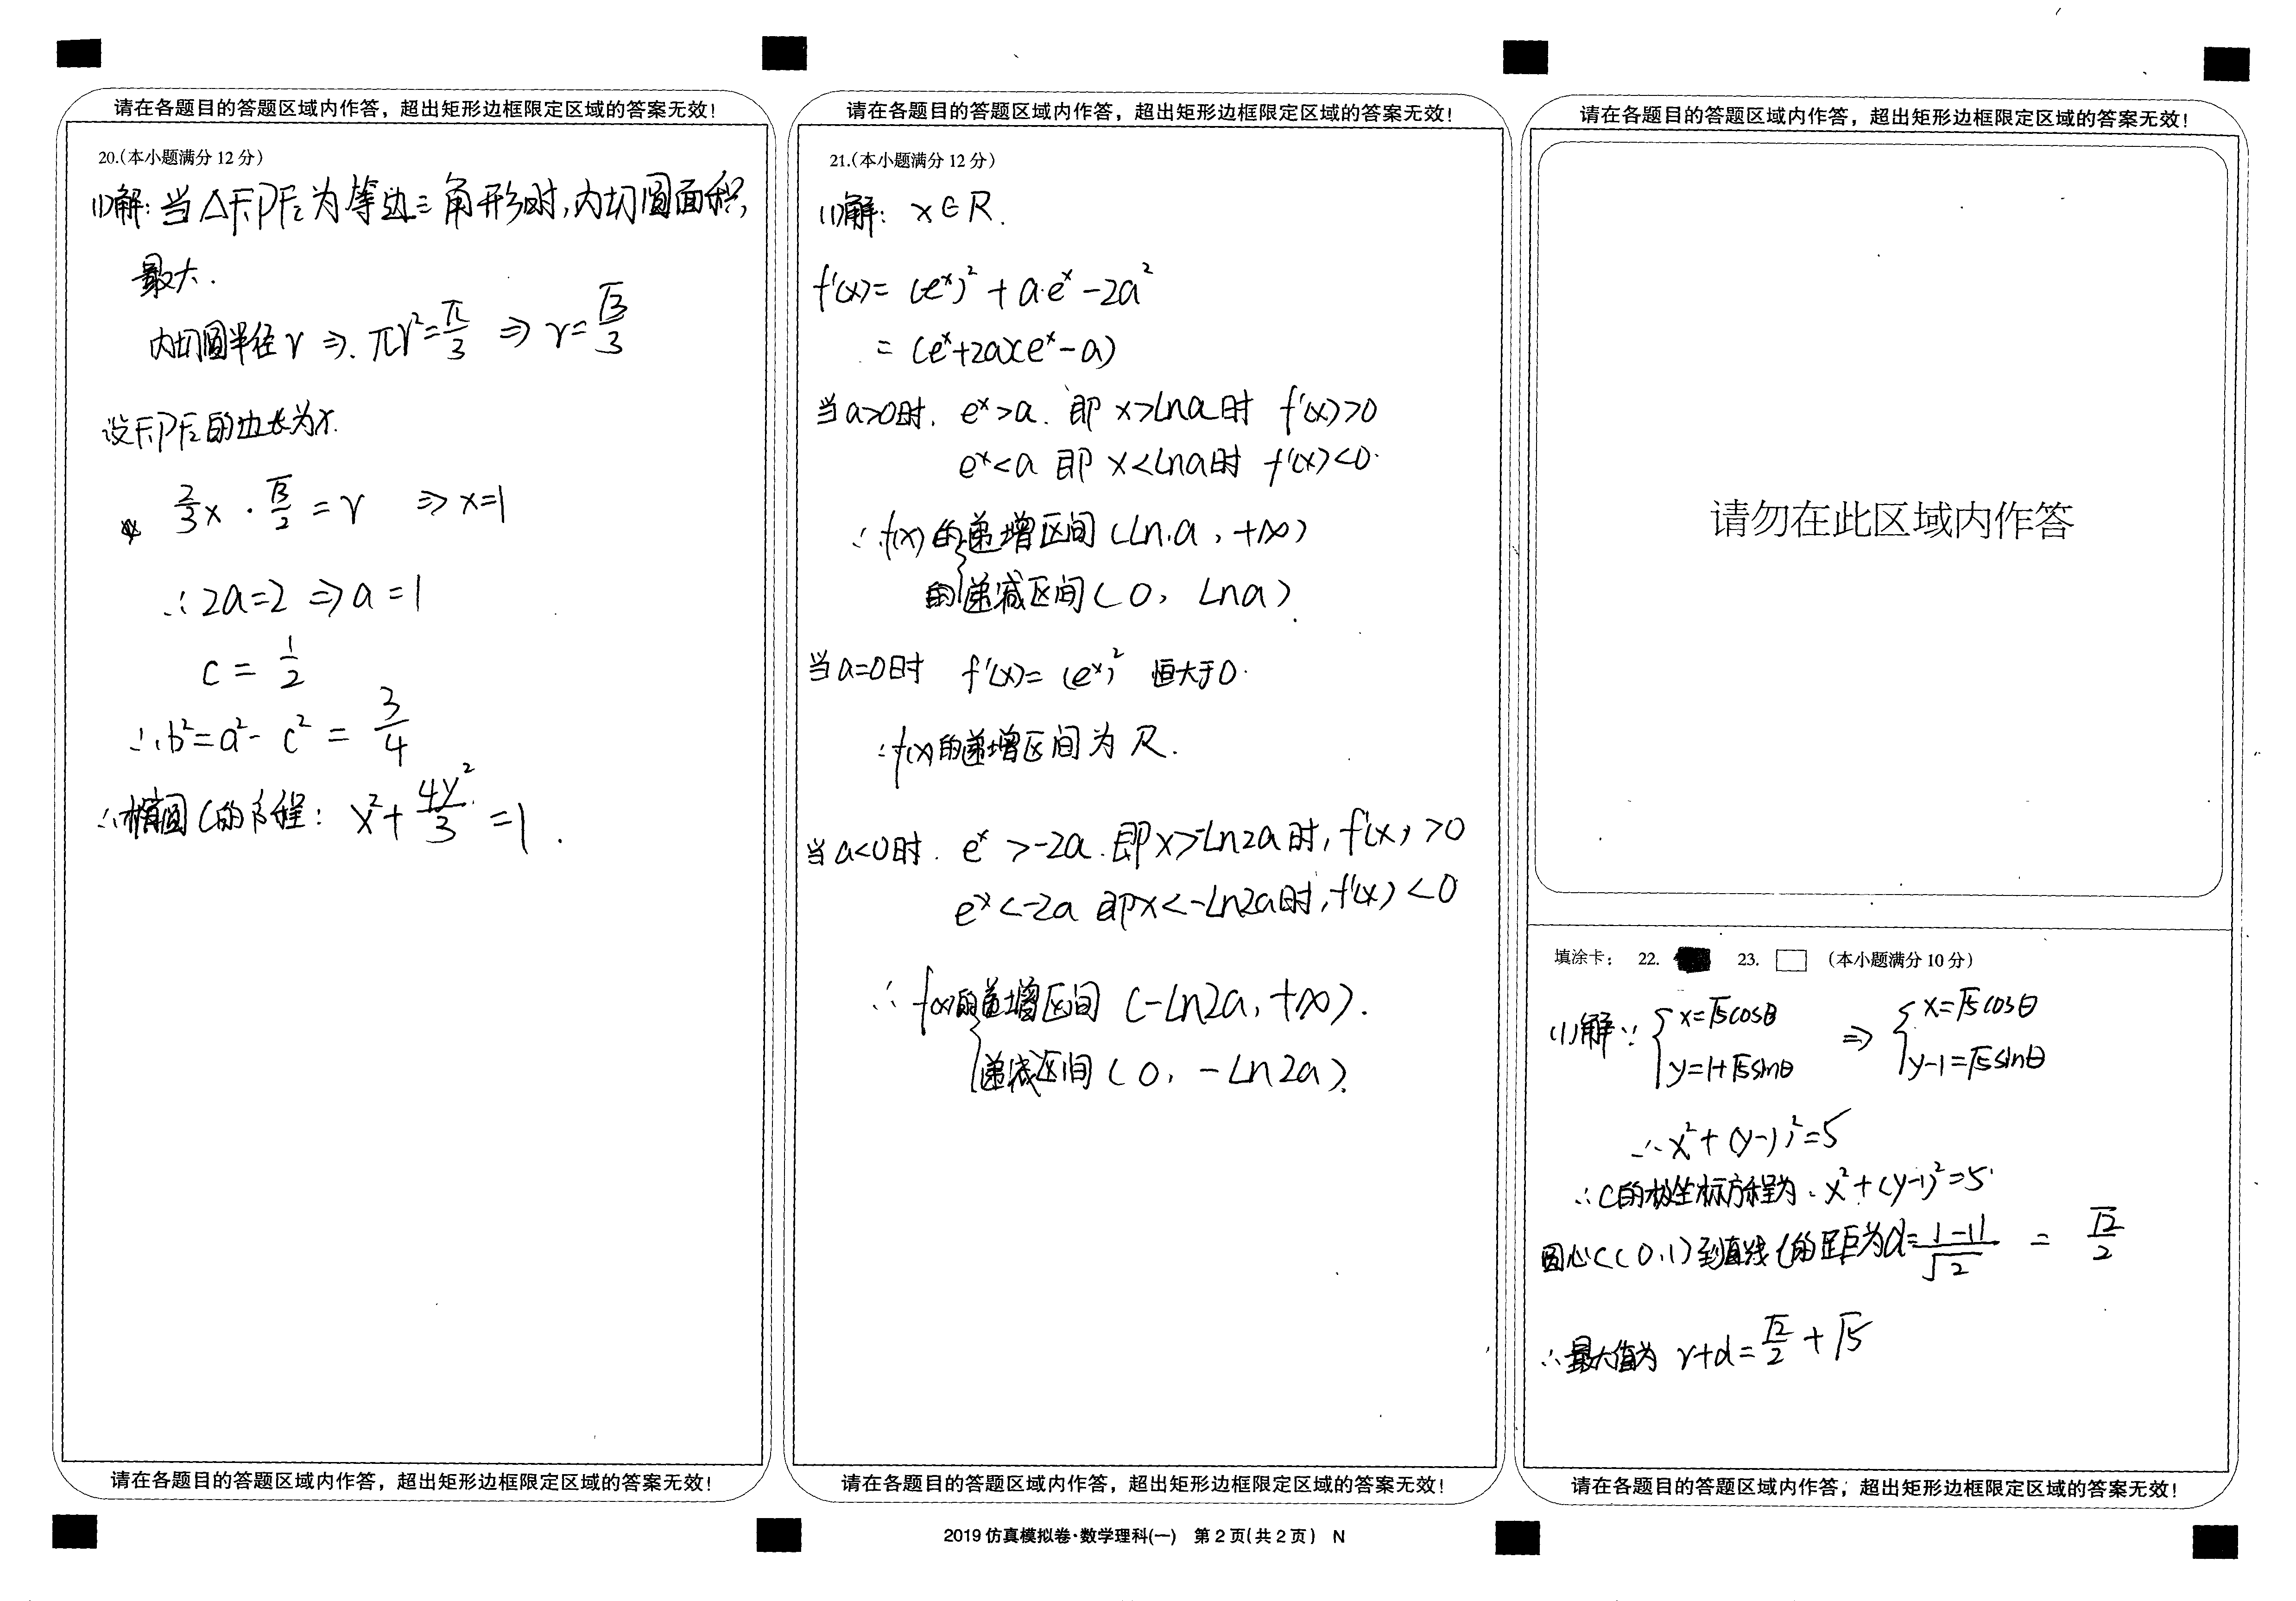 请在各题目的答题区域内作答，超出矩形边框限定区域的答案无效！
20.（本小题满分 12 分）
(1)解：当△F₁PF₂为等边三角形时，内切圆面积，
最大．
内切圆半径 r ⇒. πr²=π/3 ⇒ r=√3/3
设F₁PF₂的边长为x.
2/3 x · √3/2 = r ⇒ x=1
∴2a=2 ⇒ a=1
c = 1/2
∴b²=a²-c² = 3/4
∴椭圆C的方程： x²+4y²/3=1 .
请在各题目的答题区域内作答，超出矩形边框限定区域的答案无效！
请在各题目的答题区域内作答，超出矩形边框限定区域的答案无效！
21.（本小题满分 12 分）
(1)解： x∈R.
f'(x)= (eˣ)²+a·eˣ-2a²
= (eˣ+2a)(eˣ-a)
当a>0时. eˣ>a. 即 x>lna时 f'(x)>0
eˣ<a 即 x<lna时 f'(x)<0.
∴f(x)的递增区间(lna，+∞)
的递减区间(0，lna).
当a=0时 f'(x)= (eˣ)² 恒大于0.
∴f(x)的递增区间为R.
当a<0时. eˣ>-2a.即x>-ln2a时，f'(x)>0
eˣ<-2a 即x<-ln2a时，f'(x)<0
∴f(x)的递增区间 (-ln2a，+∞).
递减区间(0，-ln2a).
请在各题目的答题区域内作答，超出矩形边框限定区域的答案无效！
请在各题目的答题区域内作答，超出矩形边框限定区域的答案无效！
请勿在此区域内作答
填涂卡： 22. 23. （本小题满分 10 分）
(1)解∵ { x=√5cosθ ⇒ { x=√5cosθ
y=1+√5sinθ y-1=√5sinθ
∴x²+(y-1)²=5
∴C的极坐标方程为.x²+(y-1)²=5.
圆心C(0,1)到直线l的距为d=|-1|/√2 = √2/2
∴最大值为 r+d=√2/2+√5
请在各题目的答题区域内作答，超出矩形边框限定区域的答案无效！
2019 仿真模拟卷·数学理科(一) 第 2 页(共 2 页) N